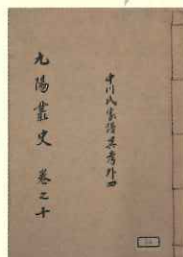 中川氏家譜異考外四
九陽叢史 卷之十